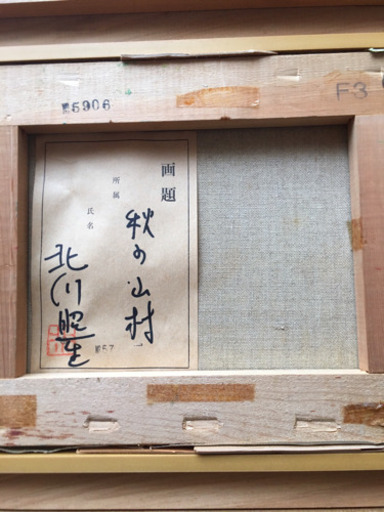 5906
F3
画題
秋の山村
所属
氏名
北川昭生